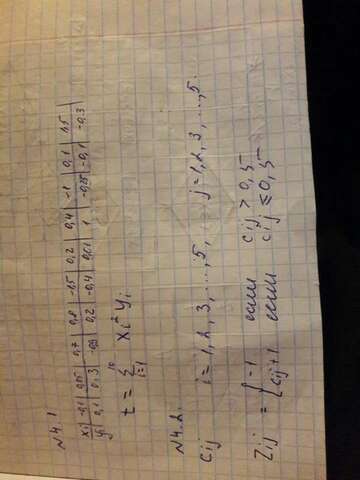 N4.1
xi -0,1 0,15 0,7 0,8 -1,5 0,2 0,4 -1 0,1 1,5
yi 0,1 0,3 0,2 -0,4 1 -0,15 -0,1 -0,3
t = Σ i=1 10 xi² yi
N4.2.
Cij i=1,2,3,...,5, j=1,2,3,...,5.
Zij = { -1 если cij > 0,5
cij+1 если cij ≤ 0,5